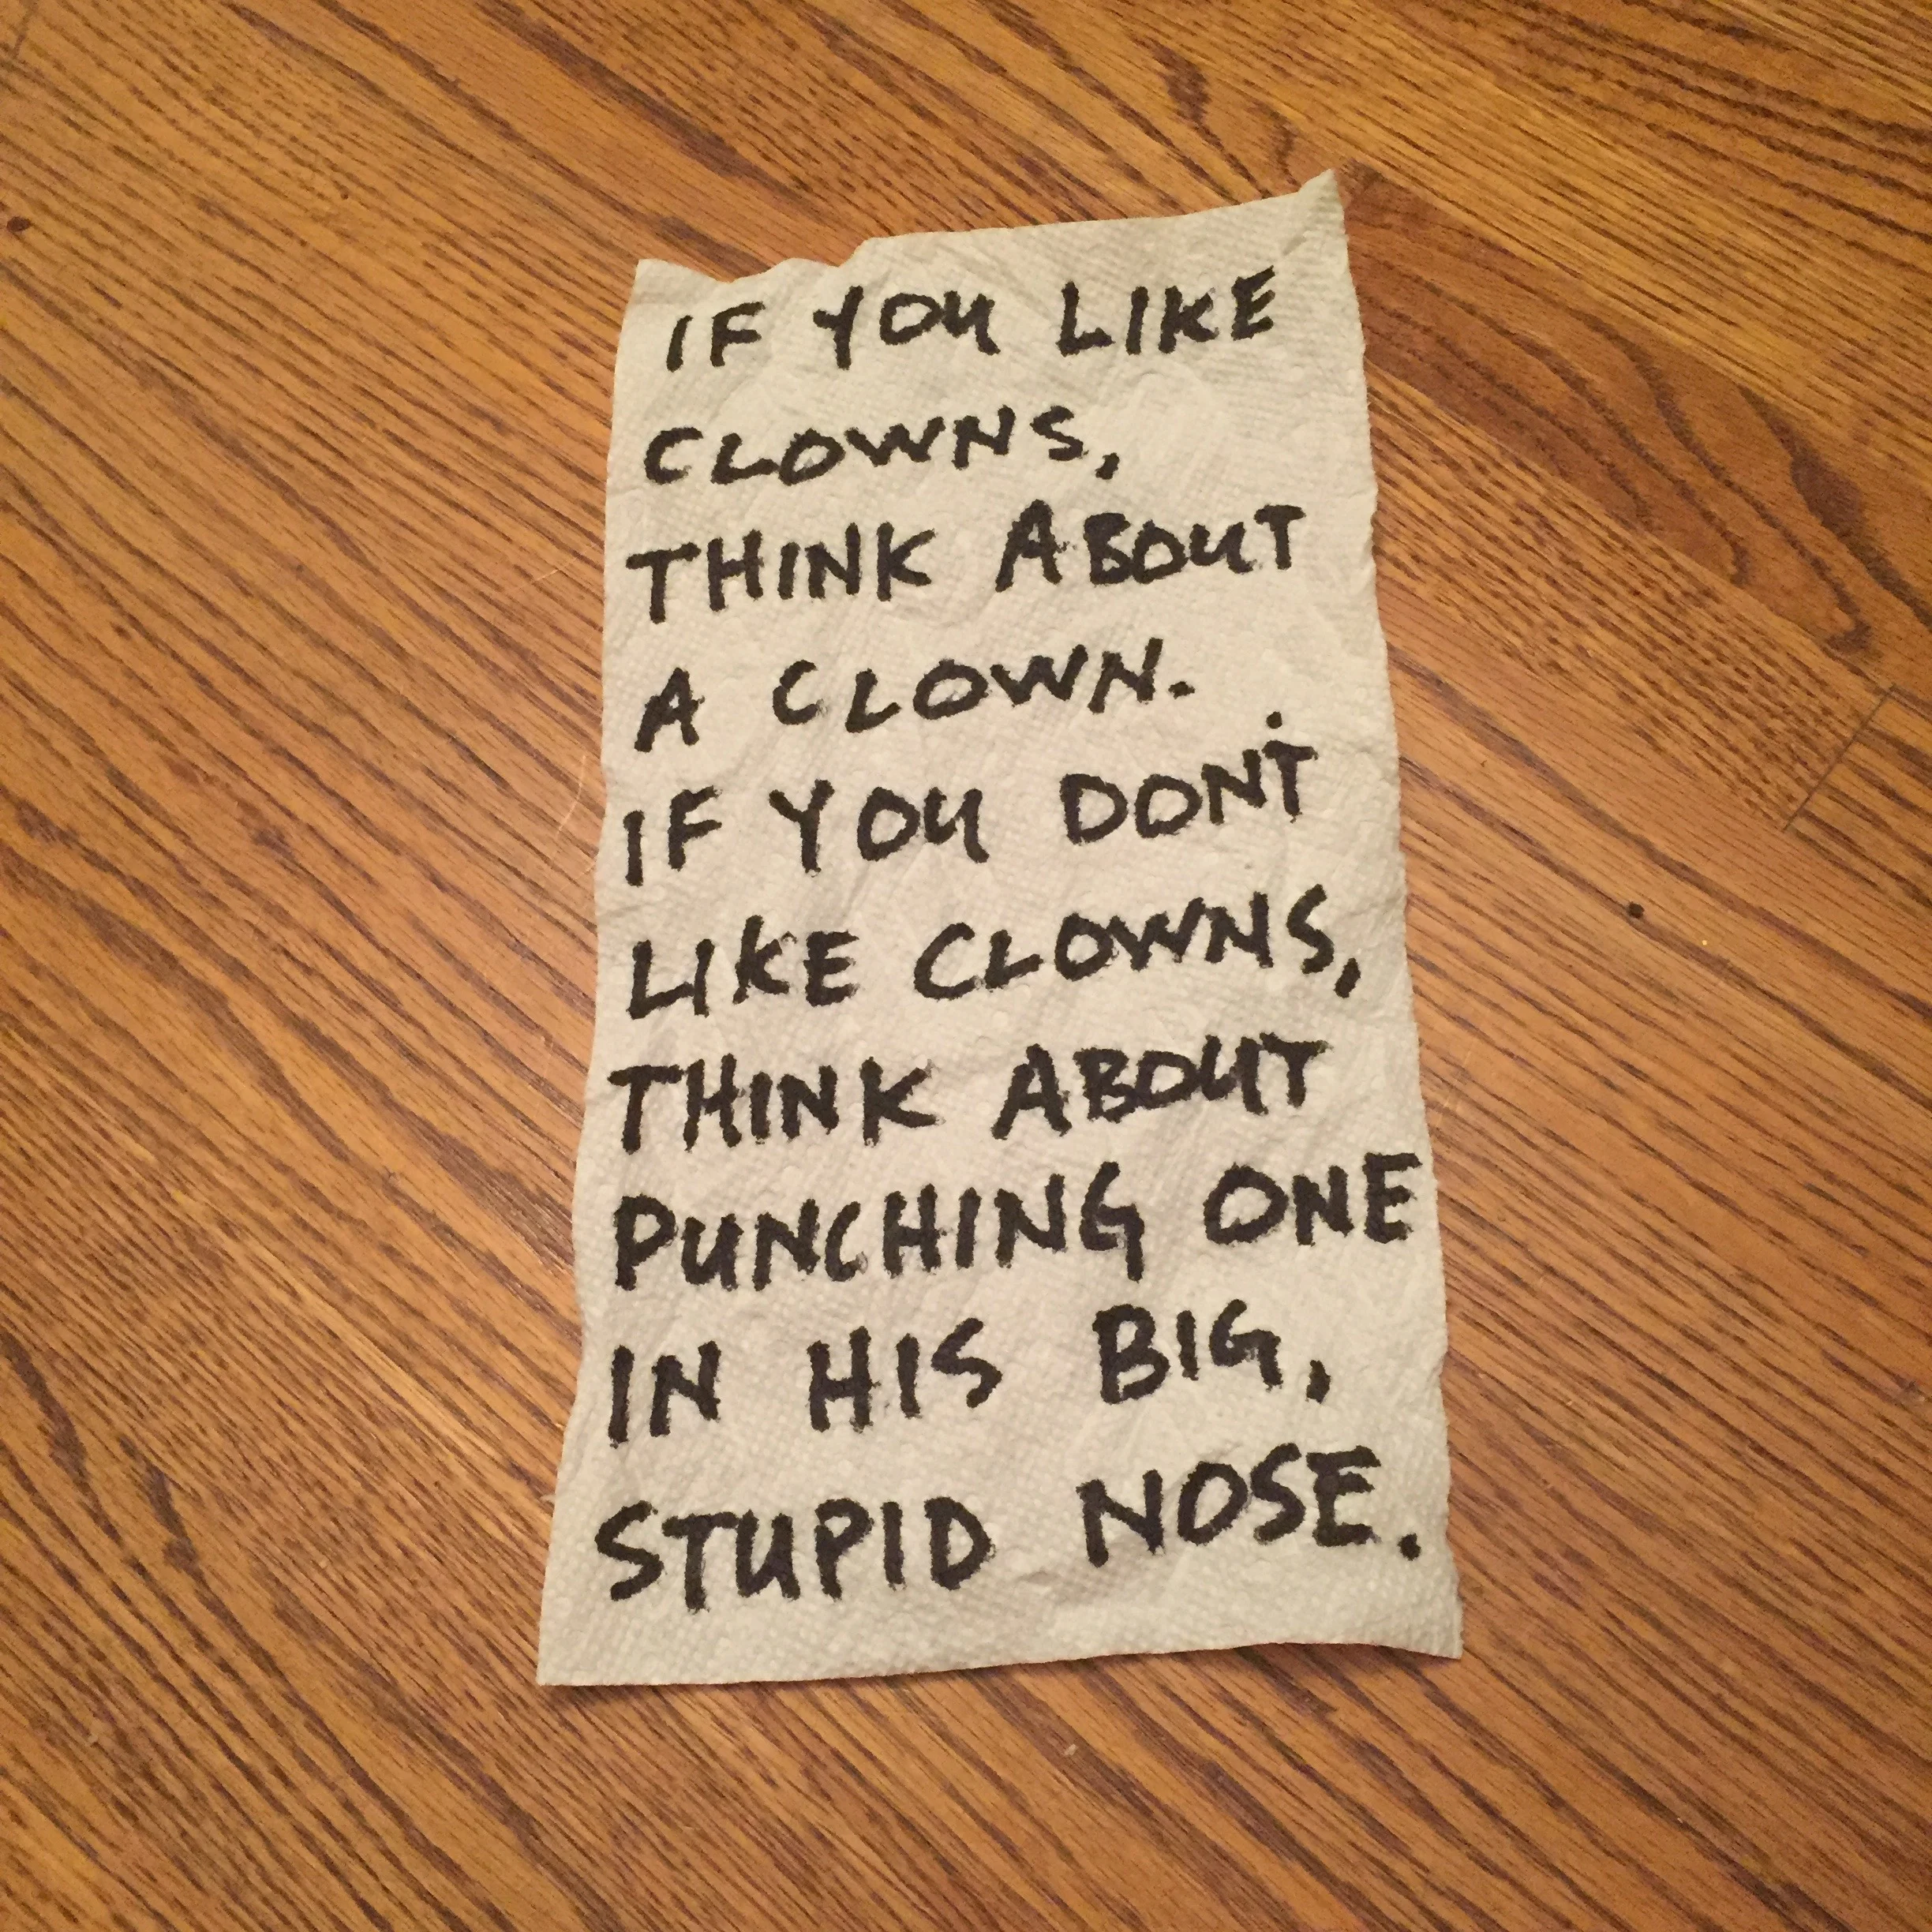 IF YOU LIKE
CLOWNS,
THINK ABOUT
A CLOWN.
IF YOU DON'T
LIKE CLOWNS,
THINK ABOUT
PUNCHING ONE
IN HIS BIG,
STUPID NOSE.